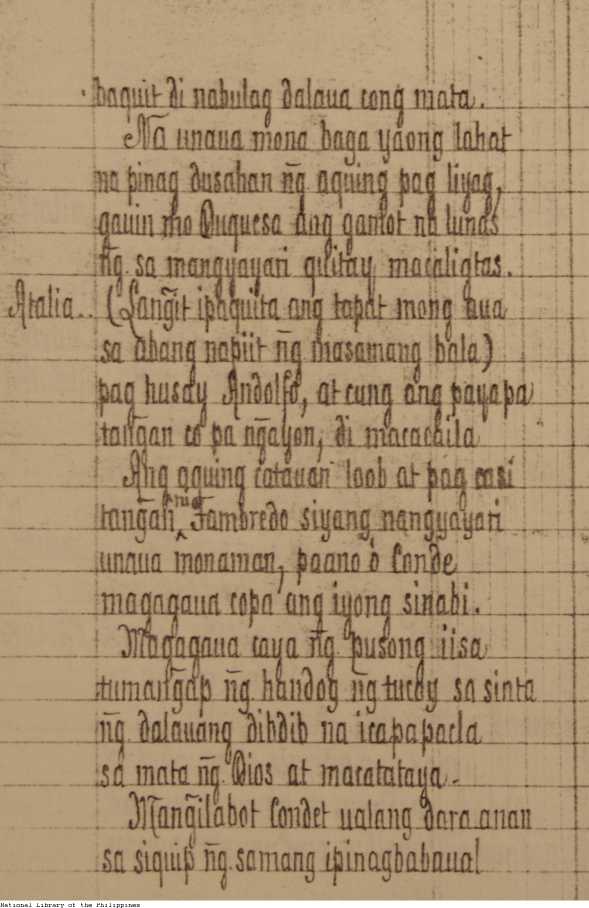 baquit di nabulag dalaua cong mata.
Na unaua mona baga yaong lahat
na pinag dusahan n̄g aquing pag liyag,
gauin mo Duquesa ang gamot na lunas
n̄g sa mangyayari qilitay macaligtas.
Atalia.. (Lan̄git ipaquita ang tapat mong aua
sa abang napiit n̄g masamang bala)
pag husay Andolfo, at cung ang payapa
tan̄gan co pa n̄gayon, di macacaila
Ang aquing catauan loob at pag casi
tan̄gan Tambredo siyang nangyayari
unaua monaman, paano ó Conde
magagaua copa ang iyong sinabi.
Magagaua caya n̄g pusong iisa
tuman̄gap n̄g handog n̄g tucoy sa sinta
n̄g dalauang dibdib na icapapacla
sa mata n̄g Dios at macatataya.
Man̄gilabot Condet ualang dara anan
sa siquip n̄g samang ipinagbabaual
National Library of the Philippines